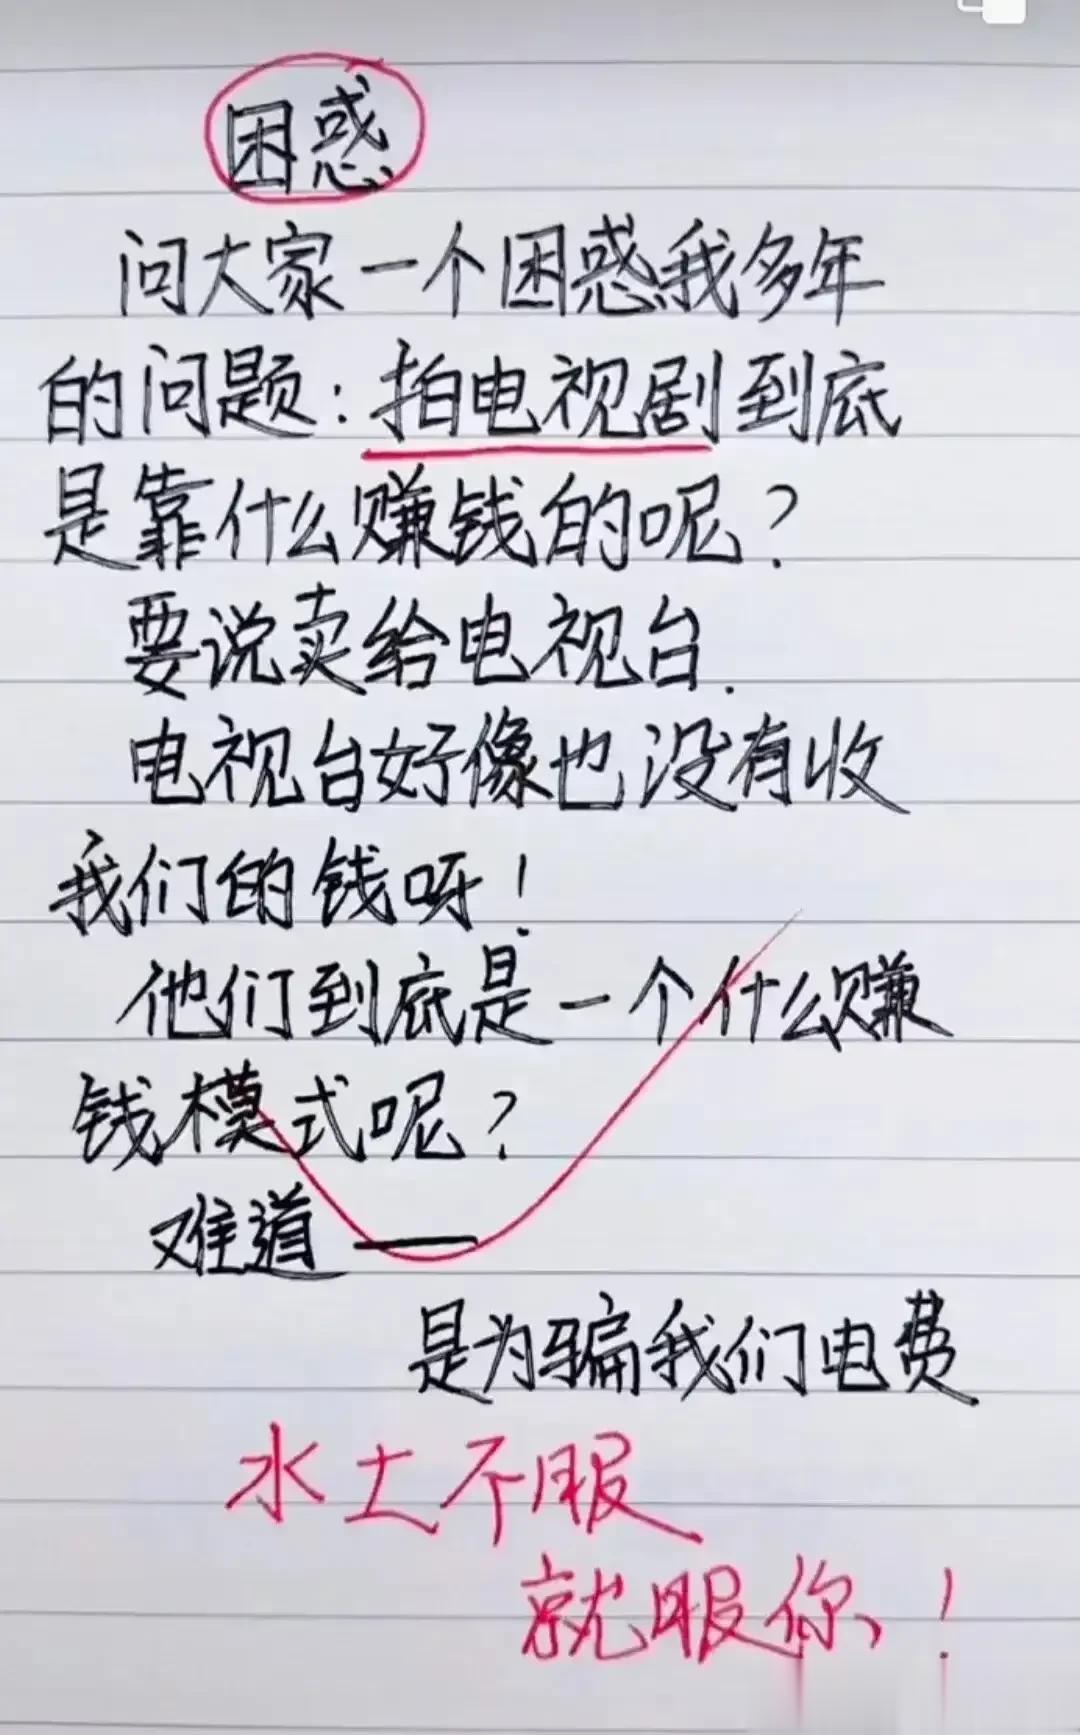 困惑
问大家一个困惑我多年
的问题：拍电视剧到底
是靠什么赚钱的呢？
要说卖给电视台.
电视台好像也没有收
我们的钱呀！
他们到底是一个什么赚
钱模式呢？
难道——
是为骗我们电费
水土不服
就服你！